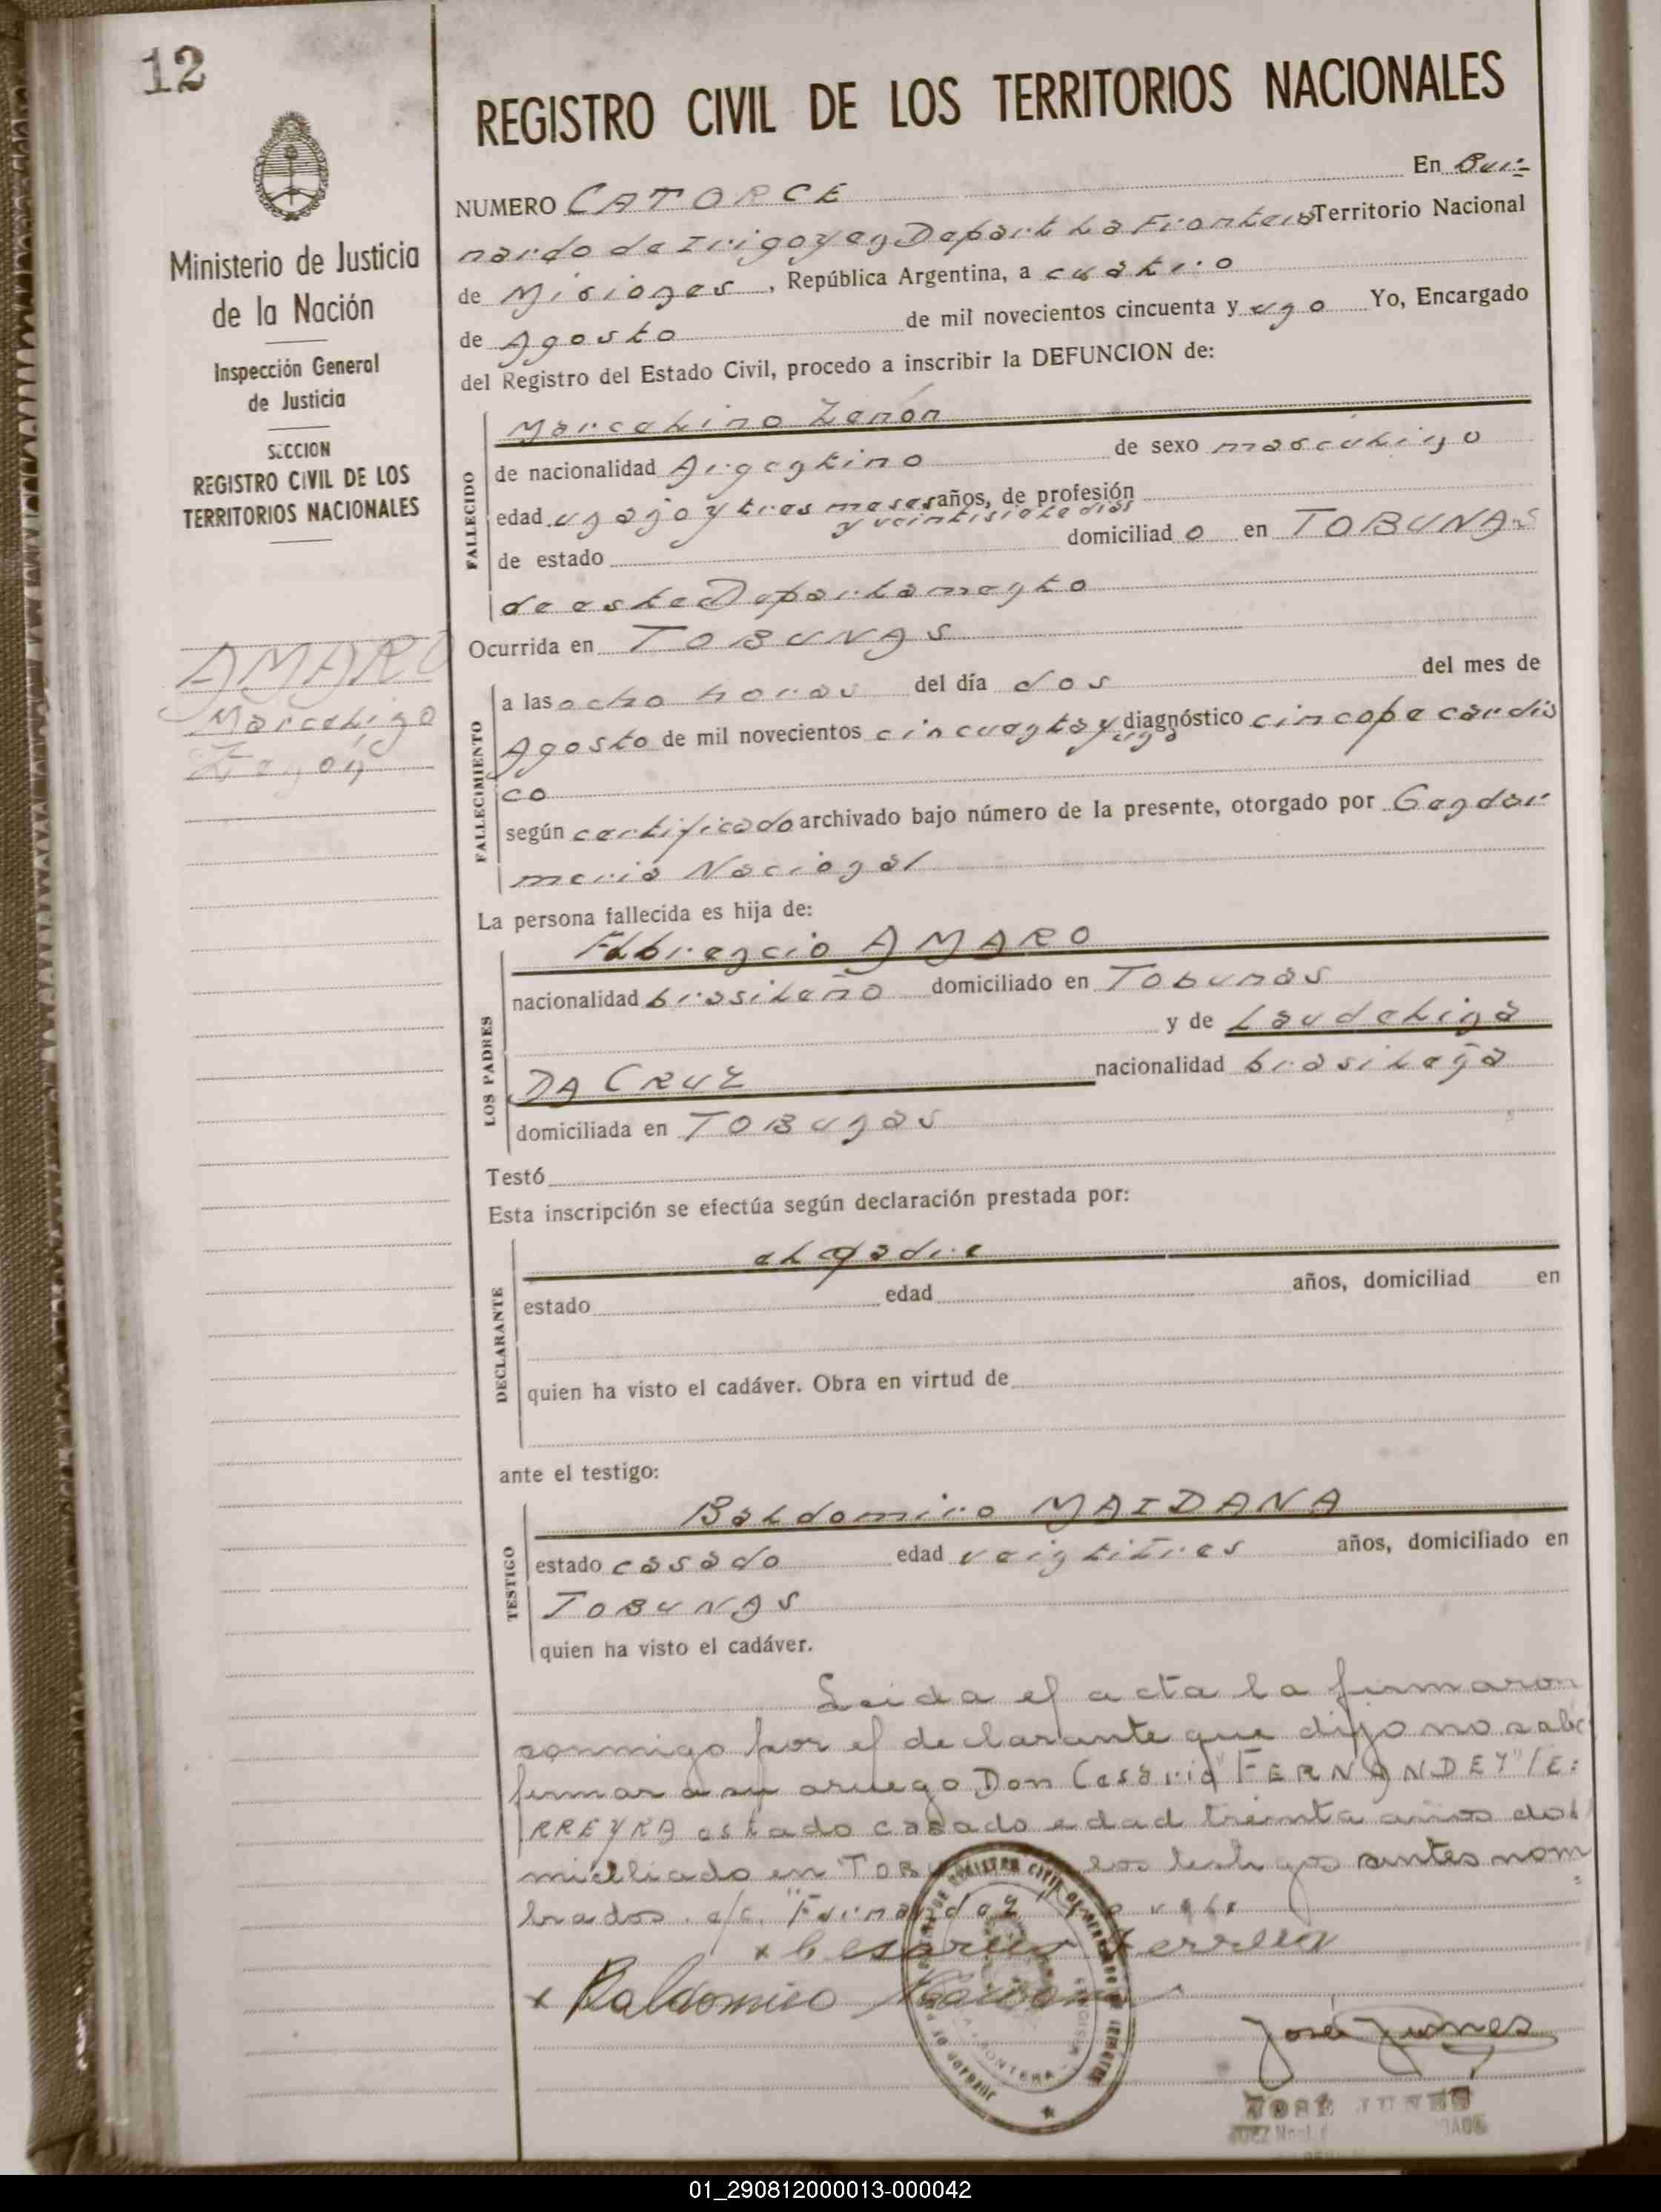 12
REGISTRO CIVIL DE LOS TERRITORIOS NACIONALES
Ministerio de Justicia
de la Nación
Inspección General
de Justicia
SECCION
REGISTRO CIVIL DE LOS
TERRITORIOS NACIONALES
AMARO
Marcelino
Zenón
NUMERO CATORCE En Ber-
nardo de Irigoyen Depart La Frontera Territorio Nacional
de Misiones, República Argentina, a cuatro
de Agosto de mil novecientos cincuenta y uno Yo, Encargado
del Registro del Estado Civil, procedo a inscribir la DEFUNCION de:
Marcelino Zenón
FALLECIDO
de nacionalidad Argentino de sexo masculino
edad un año y tres meses años, de profesión
y veintisiete días
de estado domiciliad o en TOBUNAS
de este Departamento
Ocurrida en TOBUNAS
FALLECIMIENTO
a las ocho horas del día dos del mes de
Agosto de mil novecientos cincuenta y uno diagnóstico cincope cardia
co
según certificado archivado bajo número de la presente, otorgado por Gendar
meria Nacional
La persona fallecida es hija de:
LOS PADRES
AMARO
nacionalidad brasileño domiciliado en Tobunas
y de Laudelina
DA CRUZ nacionalidad brasileña
domiciliada en TOBUNAS
Testó
Esta inscripción se efectúa según declaración prestada por:
DECLARANTE
el padre
estado edad años, domiciliad en
quien ha visto el cadáver. Obra en virtud de
ante el testigo:
TESTIGO
Baldomiro MAIDANA
estado casado edad veintitres años, domiciliado en
TOBUNAS
quien ha visto el cadáver.
Leida el acta la firmaron
conmigo por el declarante que dijo no sabe
firmar a su aruego Don Cesario "FERNANDEZ" FE:
RREYRA estado casado edad treinta años do
miciliado en TOBU los testigos antes nom
brados. e/c. "Fernandez" vale
x Cesario Ferreira
x Baldomiro Maidana
José Junes
JOSE JUNES
JUEZ
01_290812000013-000042